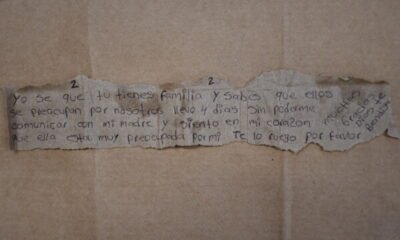 2 2
Yo se que tu tienes familia y sabes que ellos
se preocupan por nosotros llevo 4 dias sin poderme
comunicar con mi madre y siento en mi corazon
que ella esta muy preocupada por mi Te lo ruego por favor
Gracias
Dios te
Bendiga